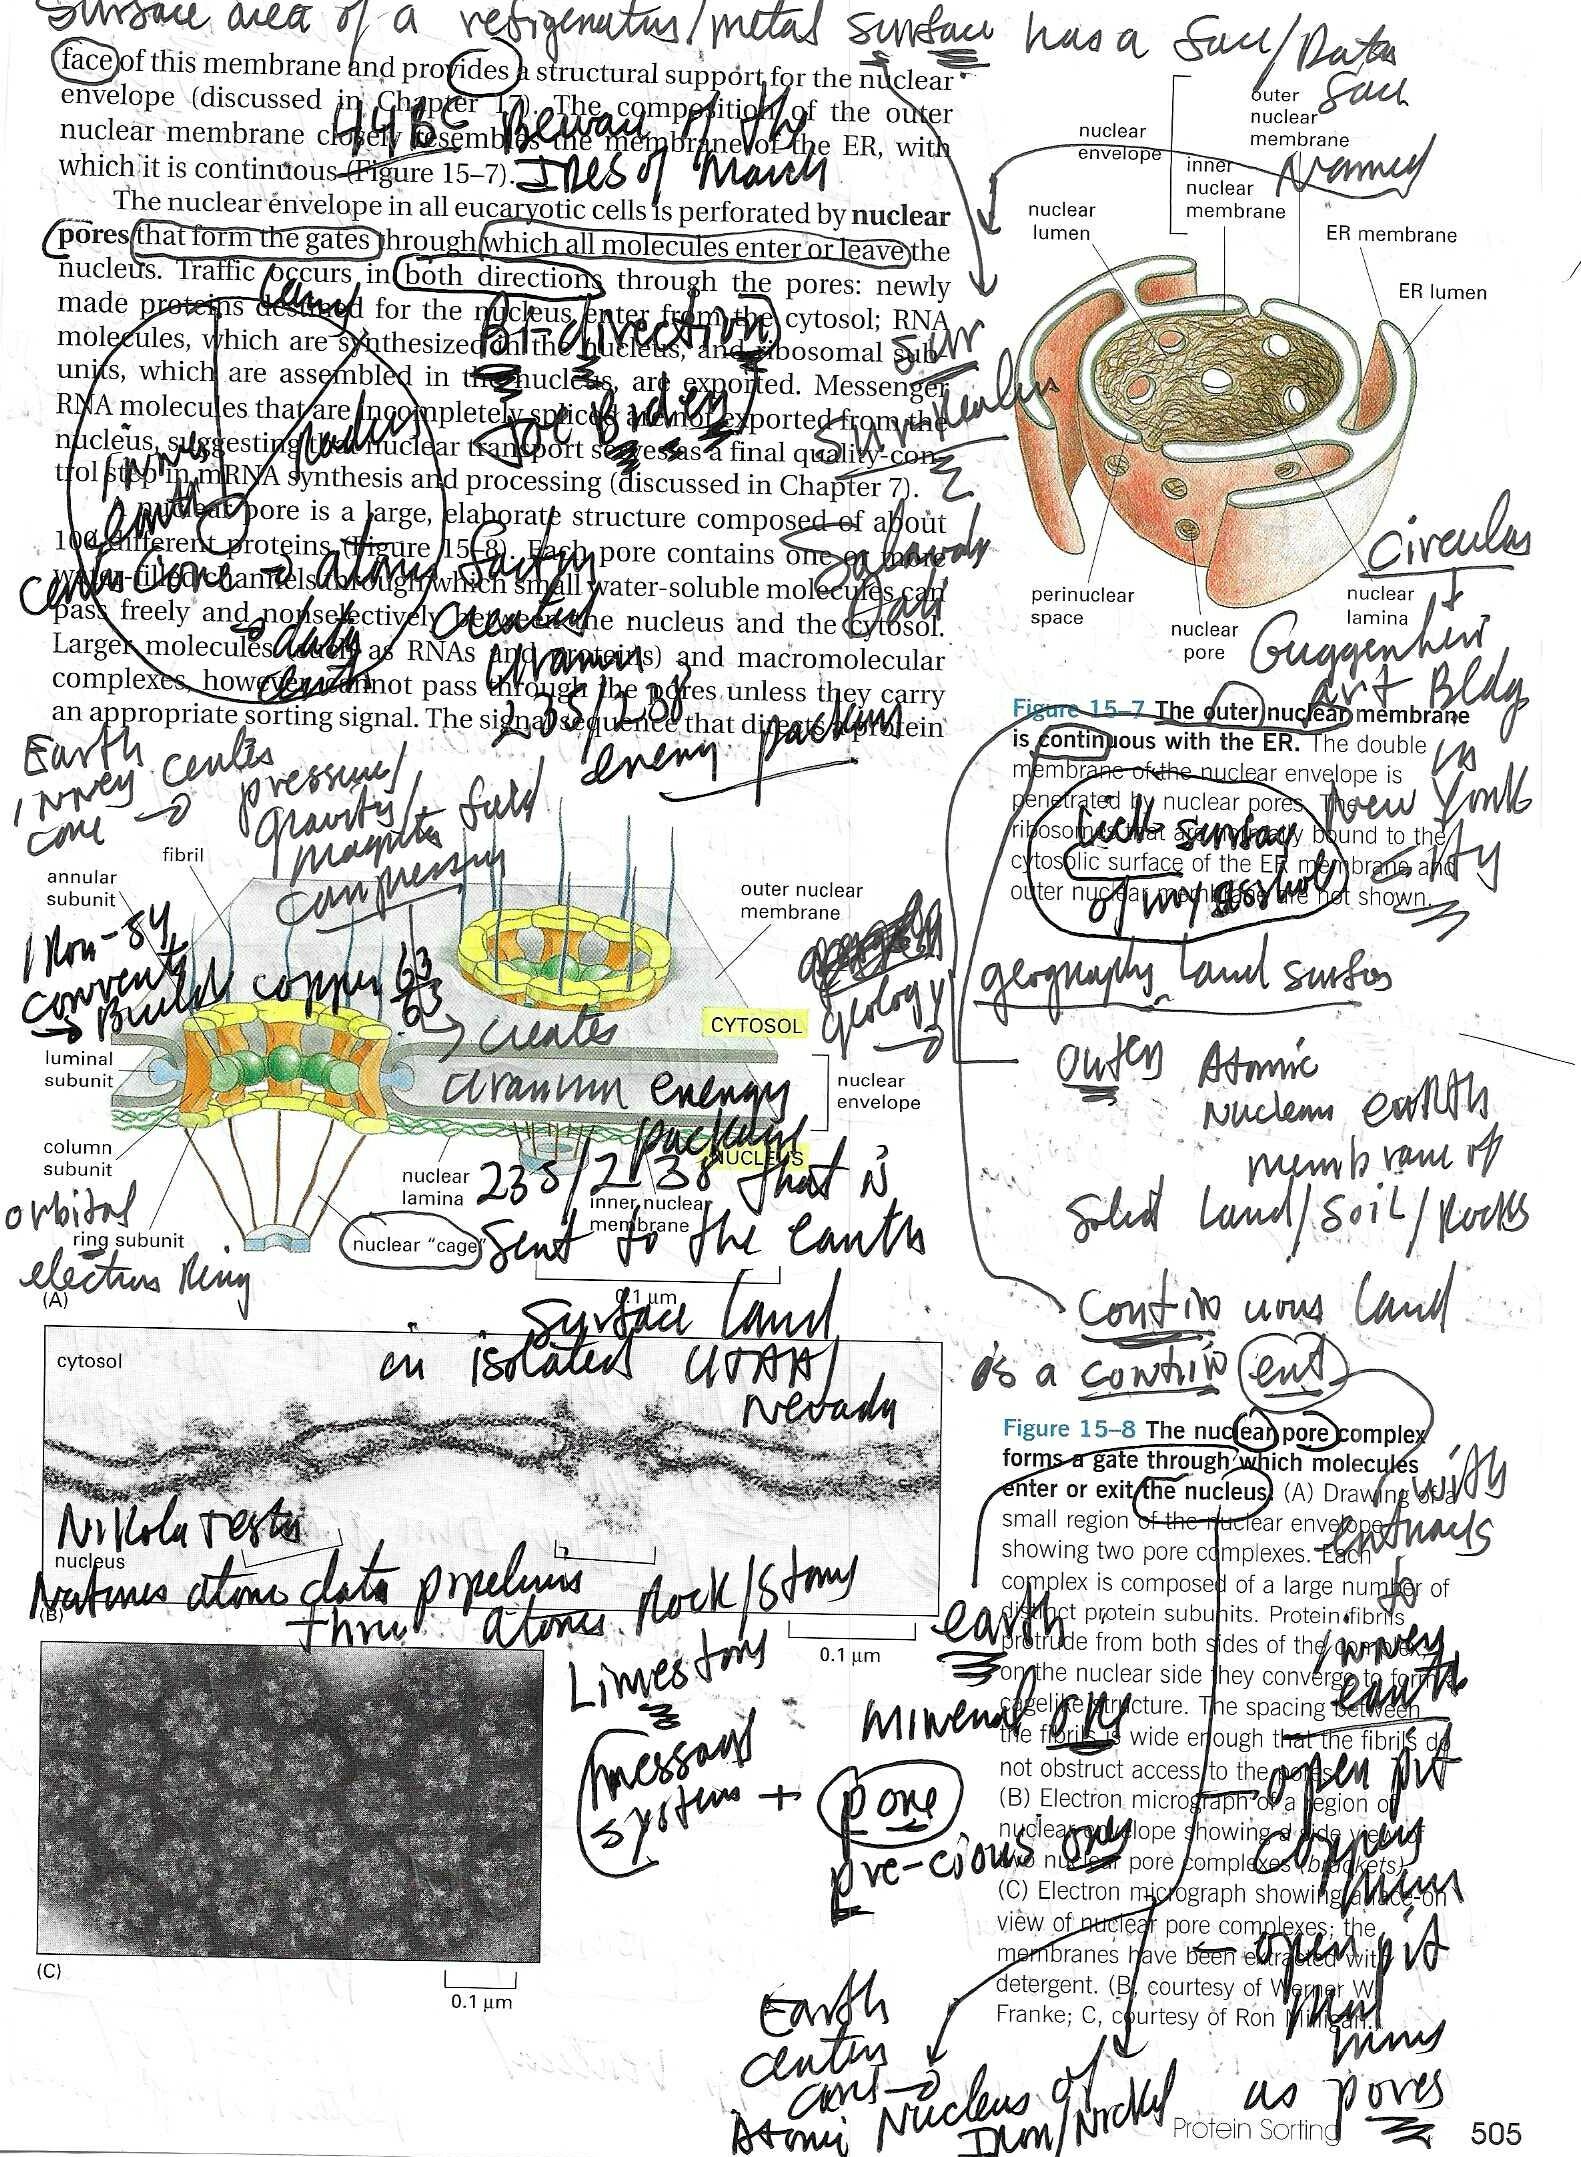 Surface area of a refrigerator/metal surface has a face/Data
face of this membrane and provides a structural support for the nuclear
envelope (discussed in Chapter 17). The composition of the outer
nuclear membrane closely resembles the membrane of the ER, with
which it is continuous (Figure 15–7).
44BC Beware of the
Ides of March
The nuclear envelope in all eucaryotic cells is perforated by nuclear
pores that form the gates through which all molecules enter or leave the
nucleus. Traffic occurs in both directions through the pores: newly
made proteins destined for the nucleus enter from the cytosol; RNA
molecules, which are synthesized in the nucleus, and ribosomal sub-
units, which are assembled in the nucleus, are exported. Messenger
RNA molecules that are incompletely spliced are not exported from the
nucleus, suggesting that nuclear transport serves as a final quality-con-
trol step in mRNA synthesis and processing (discussed in Chapter 7).
A nuclear pore is a large, elaborate structure composed of about
100 different proteins (Figure 15–8). Each pore contains one or more
water-filled channels through which small water-soluble molecules can
pass freely and nonselectively between the nucleus and the cytosol.
Larger molecules (such as RNAs and proteins) and macromolecular
complexes, however, cannot pass through the pores unless they carry
an appropriate sorting signal. The signal sequence that directs a protein
Bi-direction
Joe Biden
inner
earth
center core → atoms
→ data
235/238
energy
Sur
Dali
Earth
inner center
core →
pressure/
gravity/
magnetic field
nuclear
envelope
outer
nuclear
membrane
inner
nuclear
membrane
Named
nuclear
lumen
ER membrane
ER lumen
perinuclear
space
nuclear
pore
nuclear
lamina
Circular
Art Bldg
in
New York
City
Figure 15–7 The outer nuclear membrane
is continuous with the ER. The double
membrane of the nuclear envelope is
penetrated by nuclear pores. The
ribosomes that are normally bound to the
cytosolic surface of the ER membrane and
outer nuclear membrane are not shown.
geography land surface
geology →
outer Atomic
Nuclear earth
membrane of
Solid land/soil/Rocks
continuous land
is a continent
with
entrances
to
inner
earth
fibril
annular
subunit
outer nuclear
membrane
Iron-54
convert
→ Build copper 63
63
creates
uranium energy
package
235/238 that is
sent to the earth
surface land
in isolated UTAH/
Nevada
CYTOSOL
luminal
subunit
nuclear
envelope
column
subunit
nuclear
lamina
NUCLEUS
inner nuclear
membrane
orbital
ring subunit
electron Ring
nuclear "cage"
(A)
0.1 µm
cytosol
Nikola Tesla
nucleus
(B)
Natures atomic data pipelines
thru atomic Rock/Stone
0.1 µm
Limestone
message
systems +
pore
earth
mineral ore
pre-cious ore
(C)
0.1 µm
Figure 15–8 The nuclear pore complex
forms a gate through which molecules
enter or exit the nucleus. (A) Drawing of a
small region of the nuclear envelope
showing two pore complexes. Each
complex is composed of a large number of
distinct protein subunits. Protein fibrils
protrude from both sides of the complex;
on the nuclear side they converge to form a
cagelike structure. The spacing between
the fibrils is wide enough that the fibrils do
not obstruct access to the pores.
(B) Electron micrograph of a region of
nuclear envelope showing a side view of
two nuclear pore complexes (brackets).
(C) Electron micrograph showing a face-on
view of nuclear pore complexes; the
membranes have been extracted with
detergent. (B, courtesy of Werner W.
Franke; C, courtesy of Ron Milligan.)
open pit
copper
mine
– open pit
as pores
Earth
center
core →
Atomic Nucleus of
Iron/Nickel
Protein Sorting
505